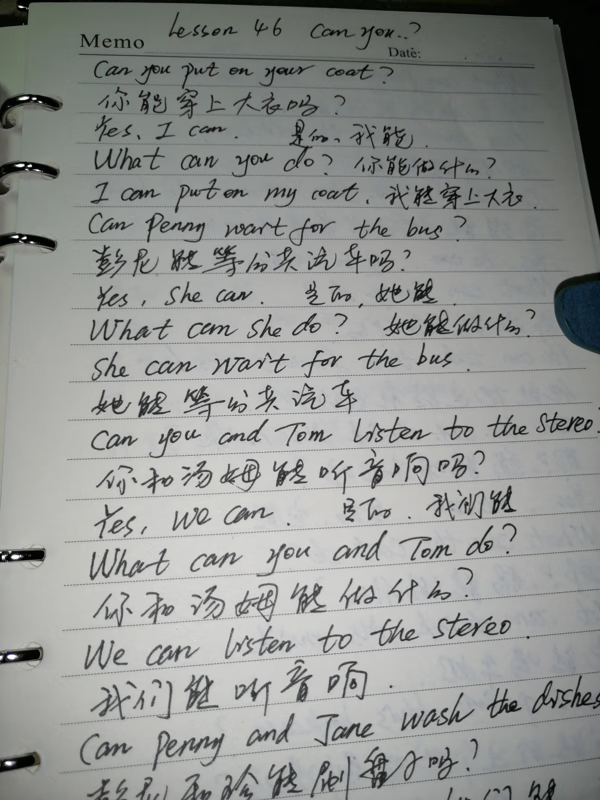 Lesson 46 Can you..?
Memo
Date:
Can you put on your coat?
你能穿上大衣吗?
Yes, I can. 是的、我能.
What can you do? 你能做什么?
I can put on my coat. 我能穿上大衣.
Can Penny wait for the bus?
彭尼能等公共汽车吗?
Yes, She can. 是的, 她能.
What can she do? 她能做什么?
She can wait for the bus.
她能等公共汽车
Can you and Tom listen to the stereo?
你和汤姆能听音响吗?
Yes, We can. 是的. 我们能
What can you and Tom do?
你和汤姆能做什么?
We can listen to the stereo.
我们能听音响.
Can Penny and Jane wash the dishes
彭尼和珍能刷盘子吗?
们能